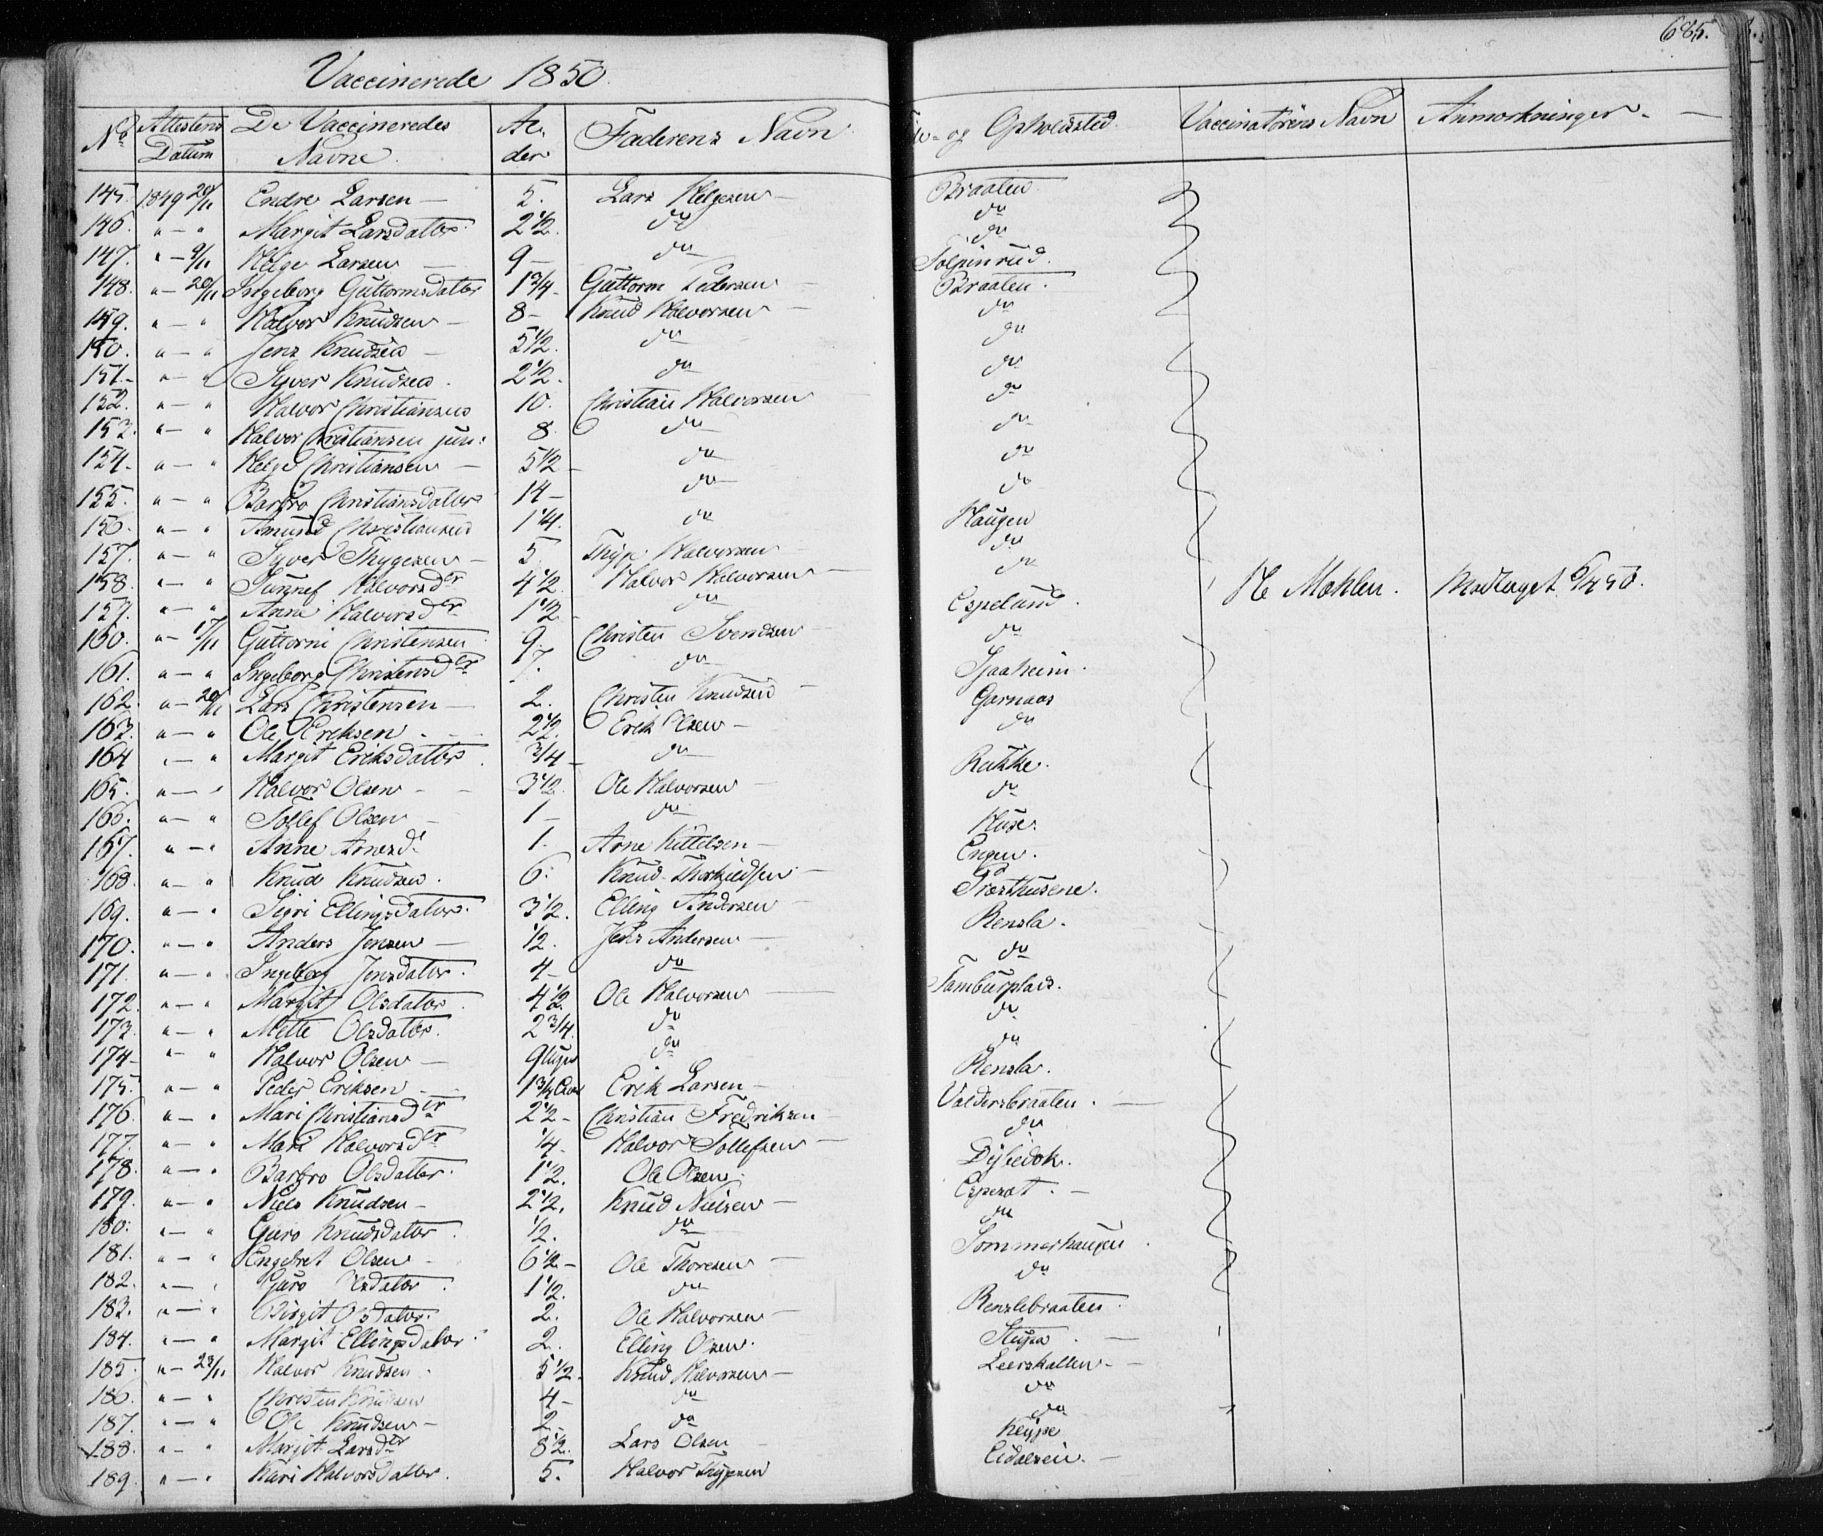 685.
Vaccinerede 1850.
No Attestens Datum De Vaccineredes Navne. Alder Faderens Navn og Opholdsted. Vaccinatörens Navn Anmærkninger.
145. 1849 20/11 Endre Larsen 5. Lars Helgesen Braaten.
146. " - " Margit Larsdatter 2 1/2. do do
147. " - 9/11 Helge Larsen 9 - do do
148. " - 20/11 Ingeborg Guttormsdatter 1 3/4. Guttorm Pedersen
149. " - " Halvor Knudsen 8 - Knud Halvorsen Braaten.
150. " - " Jens Knudsen 5 1/2. do do
151. " - " Syver Knudsen. 2 1/2. do do
152. " - " Halvor Christiansen 10. Christian Halvorsen do
153. " - " Halvor Christiansen jun: 8 do do
154. " - " Helge Christiansen 5 1/2 do do
155. " - " Barbro Christiansdatter 14 - do do
156. " - " Amund Christiansen 1 1/4. do do
157. " - " Syver Thygesen 5 Thyge Halvorsen Haugen
158. " - " Gunnef Halvorsdr 4 1/2. Halvor Halvorsen do
157. " - " Anne Halvorsdr 1 1/2 do do
160. " - 17/11 Guttorm Christensen 9. Christen Svendsen Espeland. H Mohlen. Modtaget 6/4 50.
161. " - " Ingeborg Christensdr 7. do do
162. " - 20/11 Lars Christensen 2. Christen Knudsen Sjaaheim.
163. " - " Ole Eriksen. 2 1/2. Erik Olsen Garnaas
164 " - " Margit Eriksdatter 3/4 do do
165. " - " Halvor Olsen 3 1/2. Ole Halvorsen Rukke.
166. " - " Tollef Olsen 1 - do do
167. " - " Anne Arnesd. 1. Arne Kittelsen Huse.
168. " - " Knud Knudsen. 6. Knud Engen.
169. " - " Sigri Ellingsdatter. 3 1/2. Elling Andersen Præsthusene.
170. " - " Anders Jensen 1/2. Jens Andersen Rensla.
171. " - " Ingeborg Jensdatter. 4 - do do
172. " - " Margit Olsdatter. 4 1/2. Ole Halvorsen Tamburplads.
173. " - " Mette Olsdatter. 2 3/4. do do
174 - " - " Halvor Olsen 9 Uger do do
175. " - " Peder Eriksen 1 3/4 Erik Larsen Rensla.
176. " - " Mari Christiansdr 2 1/2 - Christian Fredriksen Valdersbraaten.
177. " - " Mari Halvorsdr 1/4 - Halvor Tollefsen do
178. " - " Barbro Olsdatter. 1 1/2. Ole Olsen
179. " - " Niels Knudsen - 2 1/2. Knud Nielsen Esperot.
180. " - " Guro Knudsdatter. 1/2. do do
181. " - " Engebret Olsen 6 1/2 - Ole Thoresen Sommerhaugen.
182. " - " Guro Olsdatter. 1 1/2. do do
183. " - " Birgit Olsdatter. 2. Ole Halvorsen Renslebraaten.
184. " - " Margit Ellingsdatter. 2. Elling Olsen.
185. " - 23/11 Halvor Knudsen. 5 1/2. Knud Halvorsen Leerskallen
186. " - " Christen Knudsen 4 - do do
187. " - " Ole Knudsen - 2. do do
188. " - " Margit Larsdr 8 1/2. Lars Olsen
189. " - " Kari Halvorsdatter. 5. Halvor Thygesen